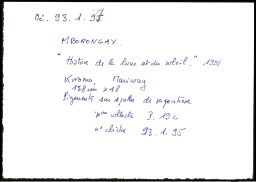 Oz. 93.1.95
MBORONGAY.
"Histoire de la lune et du soleil." 1991
Kiroma, Maniway
178 cm x 48
Pigments sur spathe de sagoutier
collecte J. 19c
n° cliché 93.1.95